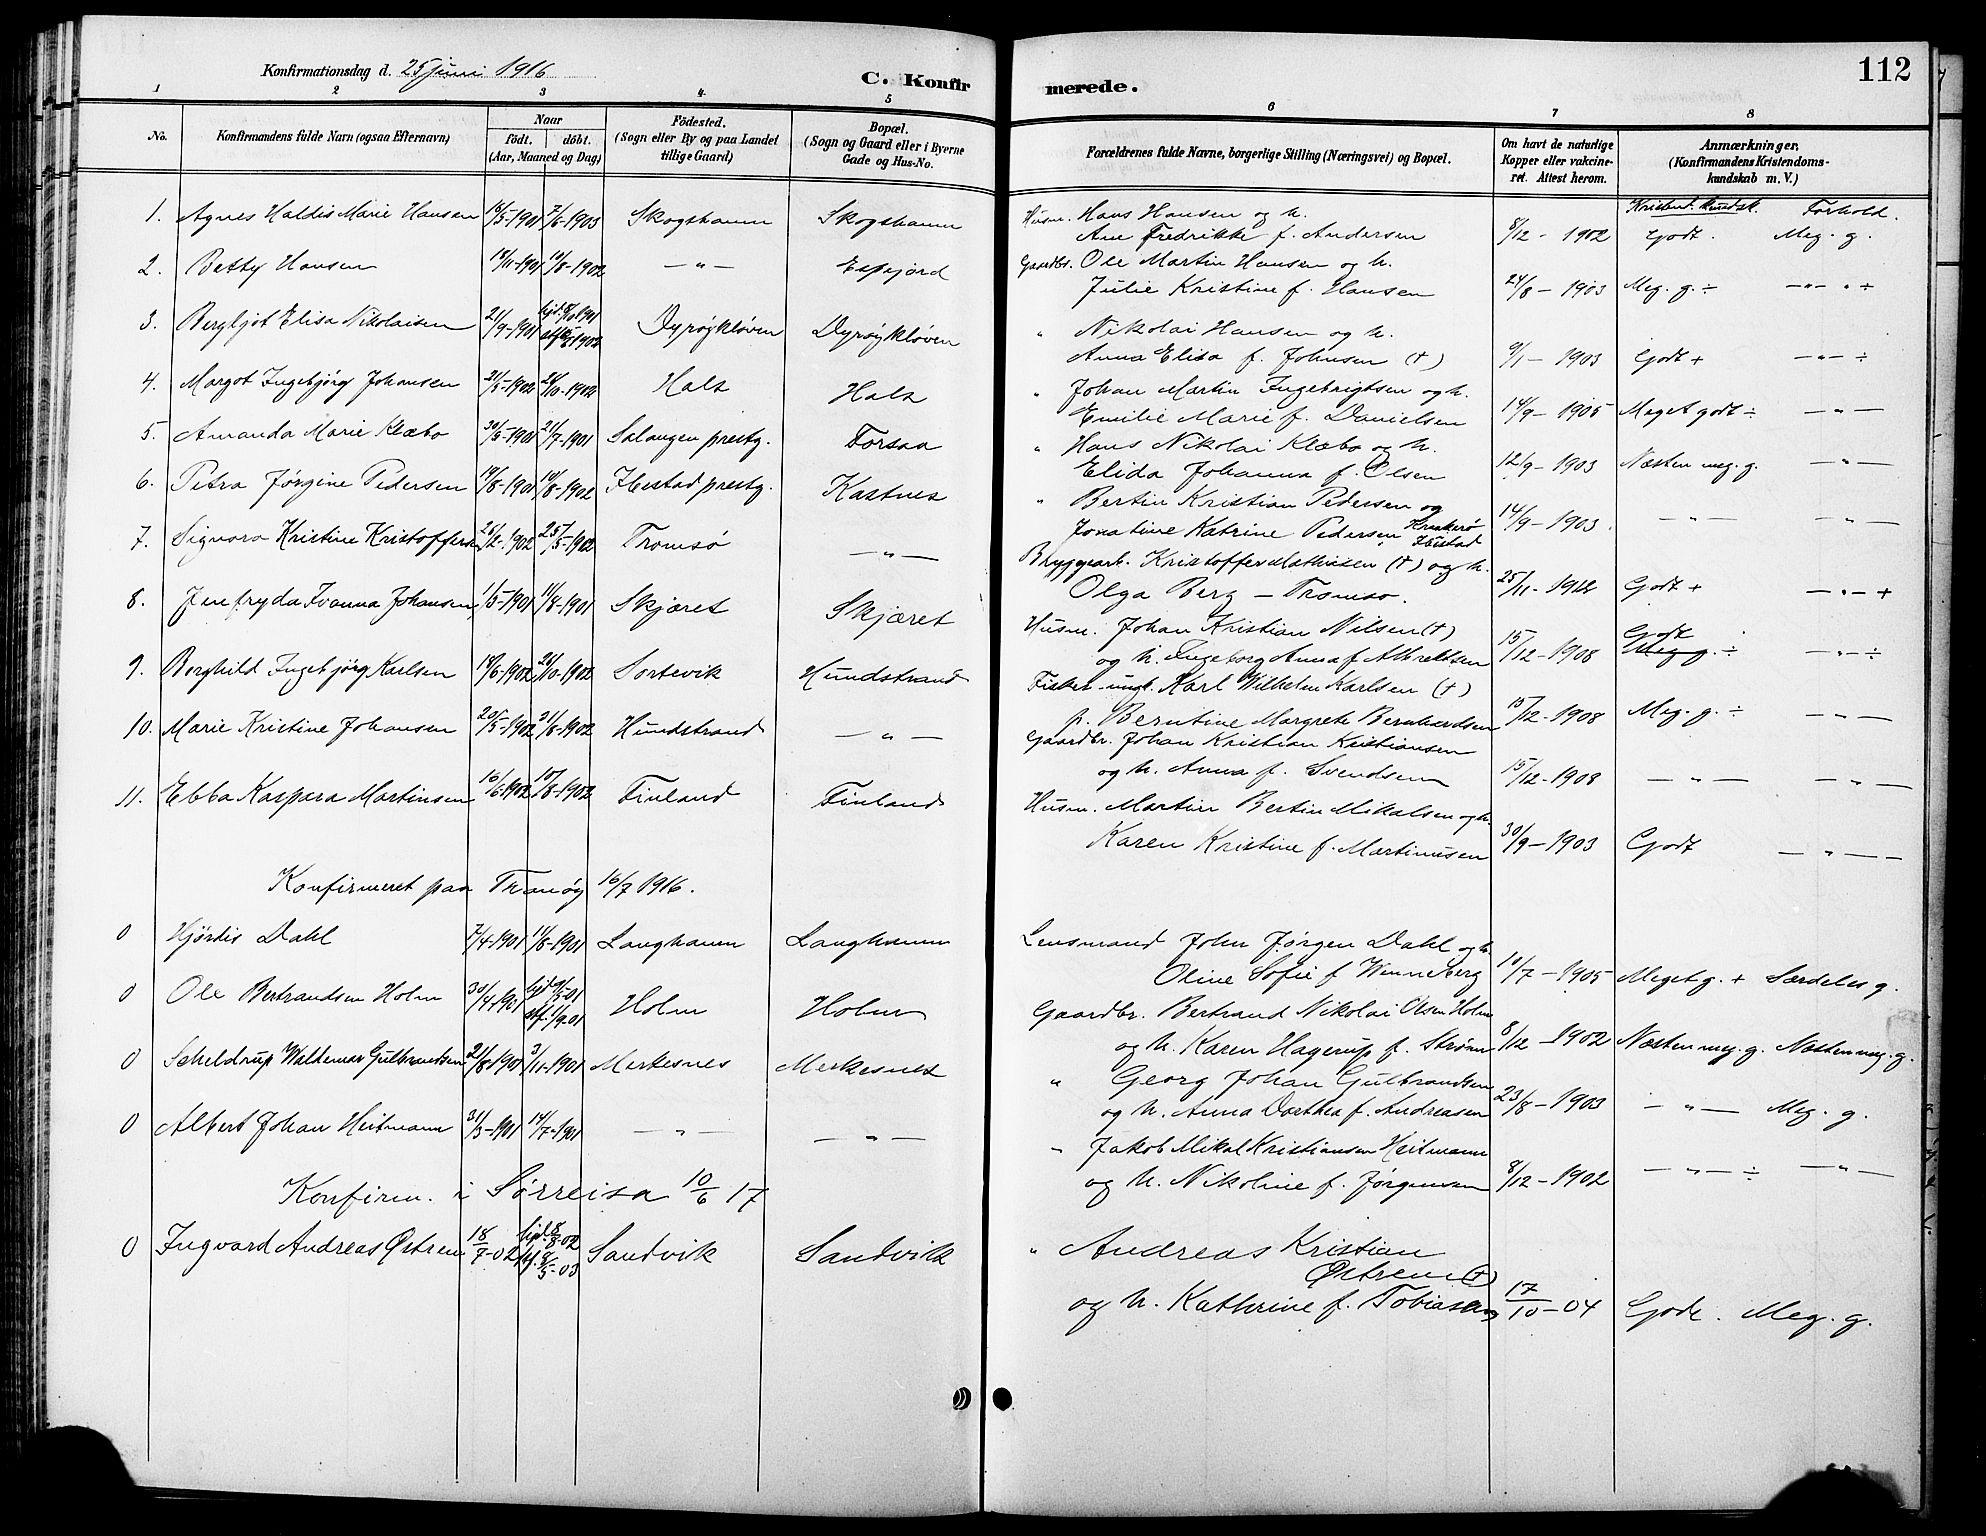 Konfirmationsdag d. 25 juni 1916
C. Konfirmerede.
112
1 2 3 4 5 6 7 8
No.
Konfirmandens fulde Navn (ogsaa Efternavn)
Naar
födt. döbt.
(Aar, Maaned og Dag)
Födested.
(Sogn eller By og paa Landet
tillige Gaard)
Bopæl.
(Sogn og Gaard eller i Byerne
Gade og Hus-No.
Forældrenes fulde Navne, borgerlige Stilling (Næringsvei) og Bopæl.
Om havt de naturlige
Kopper eller vakcine-
ret. Attest herom.
Anmærkninger.
(Konfirmandens Kristendoms-
kundskab m. V.)
Kristend. kundsk. Forhold.
1. Agnes Haldis Marie Hansen 14/5-1901 7/6-1903 Skogshamn Skogshamn Husm. Hans Hansen og h.
Ane Fredrikke f. Andersen 8/12 - 1902 Godt. Meg. g.
2. Betty Hansen 18/11-1901 11/8-1902 — " — Espejord Gaardbr. Ole Martin Hansen og h.
Julie Kristine f. Hansen 24/8 - 1903 Meg. g. ÷ — " — ÷
3. Bergljot Elisa Nikolaisen 21/9-1901 Dyröykløven Dyröykløven " Nikolai Hansen og h.
Anna Elisa f. Johnsen (†) 9/1 - 1903 Godt + — " — ÷
4. Margot Ingebjörg Johansen 21/5-1902 26/10-1902 Hals Hals " Johan Martin Ingebrigtsen og h.
Emilie Marie f. Danielsen 14/9 - 1905 Meget godt ÷ — " —
5. Amanda Marie Klæbo 30/5-1901 21/7-1901 Salangen prestg. Forsaa " Hans Nikolai Klæbo og h.
Elida Johanna f. Olsen 12/9 - 1903 Næsten meg. g. — " —
6. Petra Jørgine Pedersen 19/8-1901 10/8-1902 Ibestad prestg. Kastnes " Bertin Kristian Pedersen og
Jonatine Katrine Pedersen Krakerö Ibestad 14/9 - 1903. — " — — " —
7. Signora Kristine Kristoffersen 26/2-1902 25/5-1902 Tromsø — " — Bryggearb. Kristoffer Mathisen (†) og h.
Olga Berg — Tromsø. 25/11 - 1912 Godt + — " — +
8. Jenfryda Ivanna Johansen 1/5-1901 11/8-1901 Skjæret Skjæret Husm. Johan Kristian Nilsen (†)
og h. Ingeborg Anna f. Albreltsen 15/12 - 1908 Godt Meg g. ÷ — " — ÷
9. Borghild Ingebjörg Karlsen 18/6-1902 26/10-1902 Sortevik Hundstrand Fisker - ungk. Karl Wilhelm Karlsen (†)
p. Berntine Margrete Bernhardsen 15/12 - 1908 Meg. g. ÷ — " —
10. Marie Kristine Johansen 20/5-1902 21/8-1902 Hundstrand — " — Gaardbr. Johan Kristian Kristiansen
og h. Anna f. Svendsen 15/12 - 1908 — " — — " —
11. Ebba Kaspara Martinsen 16/6-1902 10/8-1902 Finland Finland Husm. Martin Bertin Mikalsen og h.
Karen Kristine f. Martinusen 30/9 - 1903 Godt — " —
Konfirmeret paa Tranöy 16/7 1916.
0 Hjördis Dahl 7/4-1901 11/8-1901 Langhamn Langhamn Lensmand John Jørgen Dahl og h.
Oline Sofie f. Wenneberg 10/7 - 1905 Meget g. + Særdeles g.
0 Ole Bertrandsen Holm 30/4-1901 Holm Holm Gaardbr. Bertrand Nikolai Olsen Holm
og h. Karen Hagerup f. Strøm 8/12 - 1902 Næsten meg. g. Næsten meg. g.
0 Scheldrup Waldemar Gulbrandsen 21/8-1901 3/11-1901 Merkesnes Merkesnes " Georg Johan Gulbrandsen
og h. Anna Dorthea f. Andreasen 23/8 - 1903 — " — Meg. g.
0 Albert Johan Heitmann 31/3-1901 14/7-1901 — " — — " — " Jakob Mikal Kristiansen Heitmann
og h. Nikoline f. Jørgensen 8/12 - 1902 — " — ÷ — " —
Konfirm. i Sørreisa 10/6 17
0 Ingvard Andreas Østrem 18/7-02 hjd. 8/8-02 kf. 8/5-03 Sandvik Sandvik " Andreas Kristian
Østrem (†)
og h. Kathrine f. Tobiasen 17/10 - 04 Godt. Meg. g.